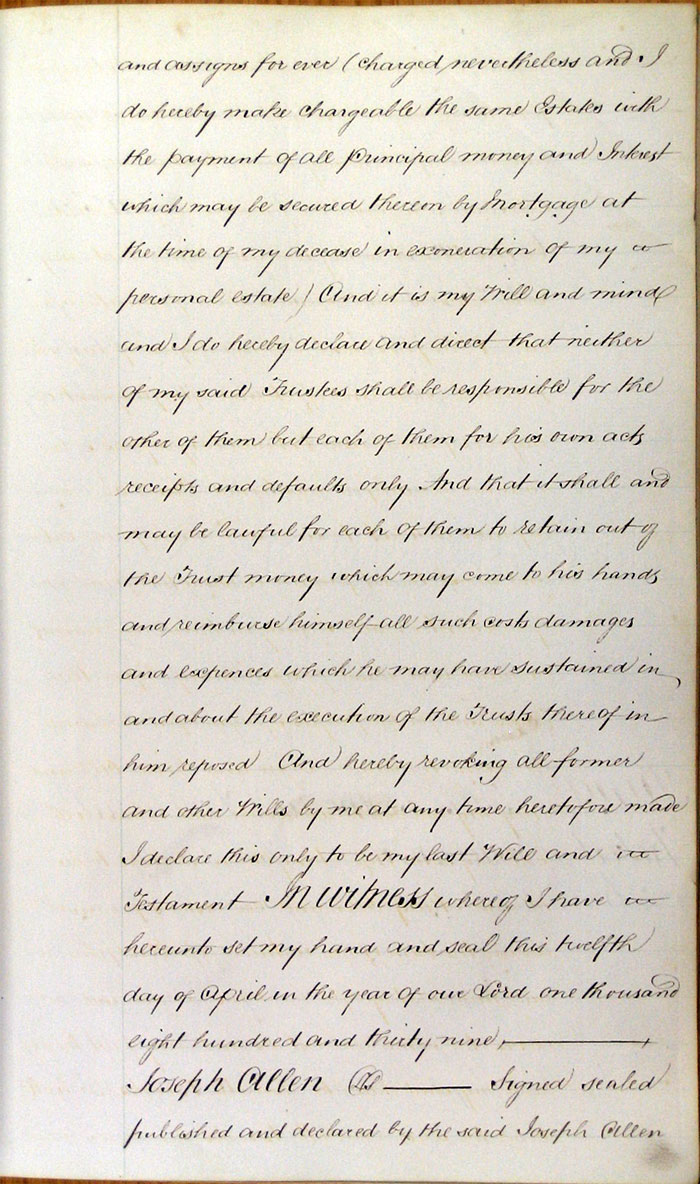 and assigns for ever (charged nevertheless and I
do hereby make chargeable the same Estates with
the payment of all principal money and Interest
which may be secured thereon by Mortgage at
the time of my decease in exoneration of my
personal estate) And it is my Will and mind
and I do hereby declare and direct that neither
of my said Trustees shall be responsible for the
other of them but each of them for his own acts
receipts and defaults only And that it shall and
may be lawful for each of them to retain out of
the Trust money which may come to his hands
and reimburse himself all such costs damages
and expences which he may have sustained in
and about the execution of the Trusts thereof in
him reposed And hereby revoking all former
and other Wills by me at any time heretofore made
I declare this only to be my last Will and
Testament In witness whereof I have
hereunto set my hand and seal this twelfth
day of April in the year of our Lord one thousand
eight hundred and thirty nine
Joseph Allen LS Signed sealed
published and declared by the said Joseph Allen